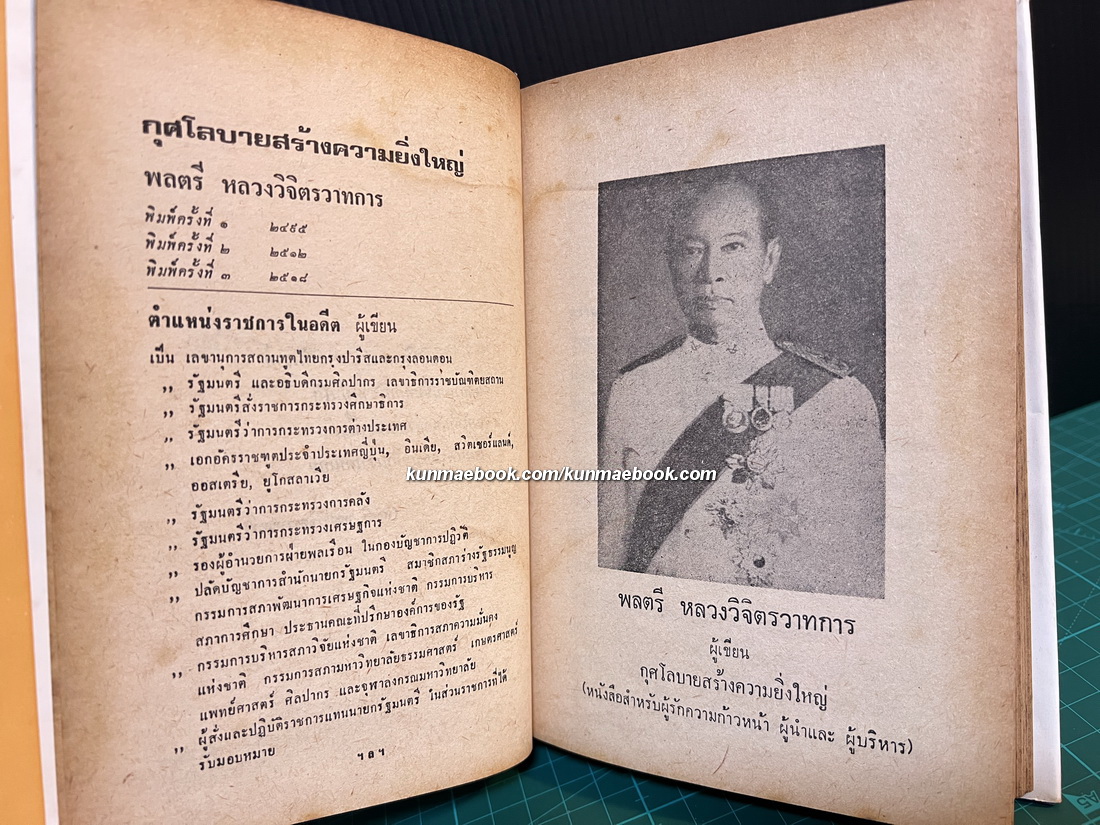 กุศโลบายสร้างความยิ่งใหญ่
พลตรี หลวงวิจิตรวาทการ
พิมพ์ครั้งที่ ๑ ๒๔๙๕
พิมพ์ครั้งที่ ๒ ๒๕๑๒
พิมพ์ครั้งที่ ๓ ๒๕๑๘
ตำแหน่งราชการในอดีต ผู้เขียน
เป็น เลขานุการสถานทูตไทยกรุงปารีสและกรุงลอนดอน
,, รัฐมนตรี และอธิบดีกรมศิลปากร เลขาธิการราชบัณฑิตยสถาน
,, รัฐมนตรีสั่งราชการกระทรวงศึกษาธิการ
,, รัฐมนตรีว่าการกระทรวงการต่างประเทศ
,, เอกอัครราชฑูตประจำประเทศญี่ปุ่น, อินเดีย, สวิตเซอร์แลนด์,
ออสเตรีย, ยูโกสลาเวีย
,, รัฐมนตรีว่าการกระทรวงการคลัง
,, รัฐมนตรีว่าการกระทรวงเศรษฐการ
,, รองผู้อำนวยการฝ่ายพลเรือน ในกองบัญชาการปฏิวัติ
,, ปลัดบัญชาการสำนักนายกรัฐมนตรี สมาชิกสภาร่างรัฐธรรมนูญ
กรรมการสภาพัฒนาการเศรษฐกิจแห่งชาติ กรรมการบริหาร
สภาการศึกษา ประธานคณะที่ปรึกษาองค์การของรัฐ
,, กรรมการบริหารสภาวิจัยแห่งชาติ เลขาธิการสภาความมั่นคง
แห่งชาติ กรรมการสภามหาวิทยาลัยธรรมศาสตร์ เกษตรศาสตร์
แพทย์ศาสตร์ ศิลปากร และจุฬาลงกรณมหาวิทยาลัย
,, ผู้สั่งและปฏิบัติราชการแทนนายกรัฐมนตรี ในส่วนราชการที่ได้
รับมอบหมาย ฯลฯ
พลตรี หลวงวิจิตรวาทการ
ผู้เขียน
กุศโลบายสร้างความยิ่งใหญ่
(หนังสือสำหรับผู้รักความก้าวหน้า ผู้นำและ ผู้บริหาร)
kunmaebook.com/kunmaebook.com
A5